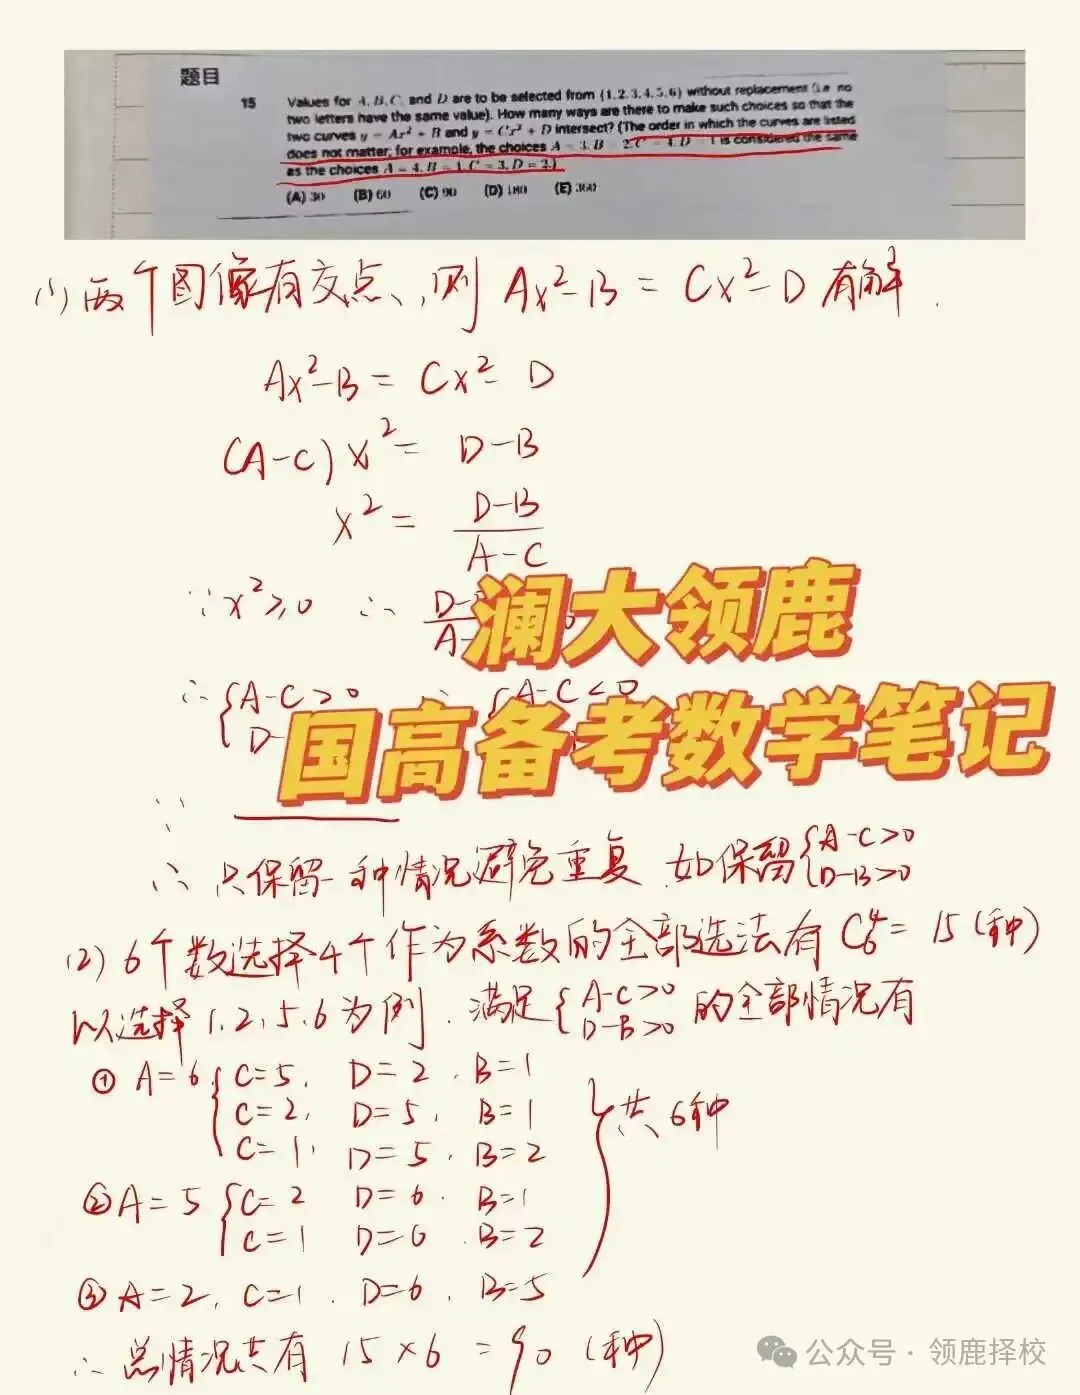 题目
15 Values for A, B, C, and D are to be selected from {1, 2, 3, 4, 5, 6} without replacement (i.e. no
two letters have the same value). How many ways are there to make such choices so that the
two curves y = Ax² + B and y = Cx² + D intersect? (The order in which the curves are listed
does not matter; for example, the choices A = 3, B = 2, C = 4, D = 1 is considered the same
as the choices A = 4, B = 1, C = 3, D = 2.)
(A) 30 (B) 60 (C) 90 (D) 180 (E) 360
(1) 两个图像有交点、,则 Ax²-B = Cx²-D 有解.
Ax²-B = Cx²-D
(A-C)x² = D-B
x² = D-B / A-C
∵x²≥0 ∴
澜大领鹿
∴ { A-C>0 { A-C<0
国高备考数学笔记
∵
∴ 只保留一种情况避免重复 如保留{ A-C>0 D-B>0
(2) 6个数选择4个作为系数的全部选法有 C₆⁴ = 15 (种)
以选择 1,2,5,6为例. 满足{ A-C>0 D-B>0 的全部情况有
① A=6 { C=5, D=2, B=1
C=2, D=5, B=1
C=1, D=5, B=2
共6种
② A=5 { C=2 D=6. B=1
C=1 D=6 B=2
③ A=2, C=1. D=6. B=5
∴ 总情况共有 15×6 = 90 (种)
公众号·领鹿择校